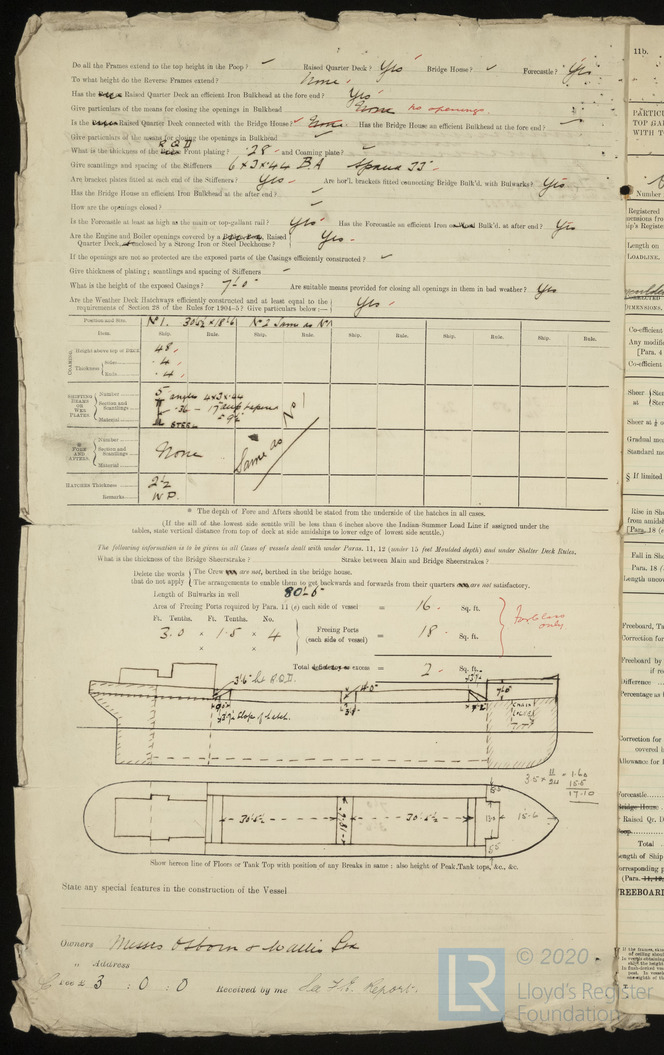 Do all the Frames extend to the top height in the Poop? ✓ Raised Quarter Deck? Yes Bridge House? ✓ Forecastle? Yes
To what height do the Reverse Frames extend? None.
Has the Raised Quarter Deck an efficient Iron Bulkhead at the fore end? Yes
Give particulars of the means for closing the openings in Bulkhead None no openings.
Is the Raised Quarter Deck connected with the Bridge House? Has the Bridge House an efficient Bulkhead at the fore end? ✓
Give particulars of the means for closing the openings in Bulkhead ✓
R Q D
What is the thickness of the Front plating? .28 and Coaming plate? ✓
Give scantlings and spacing of the Stiffeners 6 x 3 x .44 B.A Spaced
Are bracket plates fitted at each end of the Stiffeners? Yes Are hor'l. brackets fitted connecting Bridge Bulk'd. with Bulwarks? Yes
Has the Bridge House an efficient Iron Bulkhead at the after end? ✓
How are the openings closed? ✓
Is the Forecastle at least as high as the main or top-gallant rail? Yes Has the Forecastle an efficient Iron Bulk'd. at after end? Yes
Are the Engine and Boiler openings covered by a Raised
Quarter Deck, enclosed by a Strong Iron or Steel Deckhouse? Yes.
If the openings are not so protected are the exposed parts of the Casings efficiently constructed? ✓
Give thickness of plating; scantlings and spacing of Stiffeners ✓
What is the height of the exposed Casings? 7'-0" Are suitable means provided for closing all openings in them in bad weather? Yes
Are the Weather Deck Hatchways efficiently constructed and at least equal to the
requirements of Section 28 of the Rules for 1904-5? Give particulars below:— Yes
Position and Size. No 1. No 2 Same as No 1
Item. Ship. Rule. Ship. Rule. Ship. Rule. Ship. Rule. Ship. Rule.
COAMING
Height above top of DECK 48
Thickness Sides .4
Ends .4
SHIFTING BEAMS OR WEB PLATES.
Number 5
Section and Scantlings
Material STEEL
* FORE AND AFTERS.
Number
Section and Scantlings None
Material
Same as No 1
HATCHES Thickness 2½
Remarks W.P.
* The depth of Fore and Afters should be stated from the underside of the hatches in all cases.
(If the sill of the lowest side scuttle will be less than 6 inches above the Indian Summer Load Line if assigned under the
tables, state vertical distance from top of deck at side amidships to lower edge of lowest side scuttle.)
The following information is to be given in all Cases of vessels dealt with under Paras. 11, 12 (under 15 feet Moulded depth) and under Shelter Deck Rules.
What is the thickness of the Bridge Sheerstrake? Strake between Main and Bridge Sheerstrakes?
Delete the words that do not apply The Crew are not, berthed in the bridge house.
The arrangements to enable them to get backwards and forwards from their quarters are not satisfactory.
Length of Bulwarks in well 80'-6"
Area of Freeing Ports required by Para. 11 (e) each side of vessel = 16. Sq. ft.
Ft. Tenths. Ft. Tenths. No.
3.0 x 1.5 x 4 Freeing Ports (each side of vessel) = 18. Sq. ft.
x x
Total deficiency or excess = 2. Sq. ft.
3'6" ht R.Q.D.
7'-0"
Slope of hatch.
30'-5½
30'-5½
15.6
17.10
Show hereon line of Floors or Tank Top with position of any Breaks in same; also height of Peak Tank tops, &c., &c.
State any special features in the construction of the Vessel
Owners Messrs Osborn & Wallis Ltd
„ Address
Fee £ 3 : 0 : 0 Received by me
11b.
PARTICU
TOP GAL
WITH T
Number
Registered
Length on
LOADLINE.
DIMENSIONS.
Co-efficient
Any modifi
[Para. 4
Co-efficient
Sheer at
Sheer at
Gradual me
Standard me
§ If limited
Rise in She
from amidsh
[Para. 18 (
Fall in She
Para. 18 (
Length uncov
Freeboard, Ta
Correction for
Freeboard by
if re
Difference
Percentage as
Correction for
covered i
Allowance for I
Forecastle
Bridge House
Raised Qr. D
Total
ength of Ship
orresponding p
(Para.
FREEBOARD
© 2020
LR
Lloyd's Register
Foundation